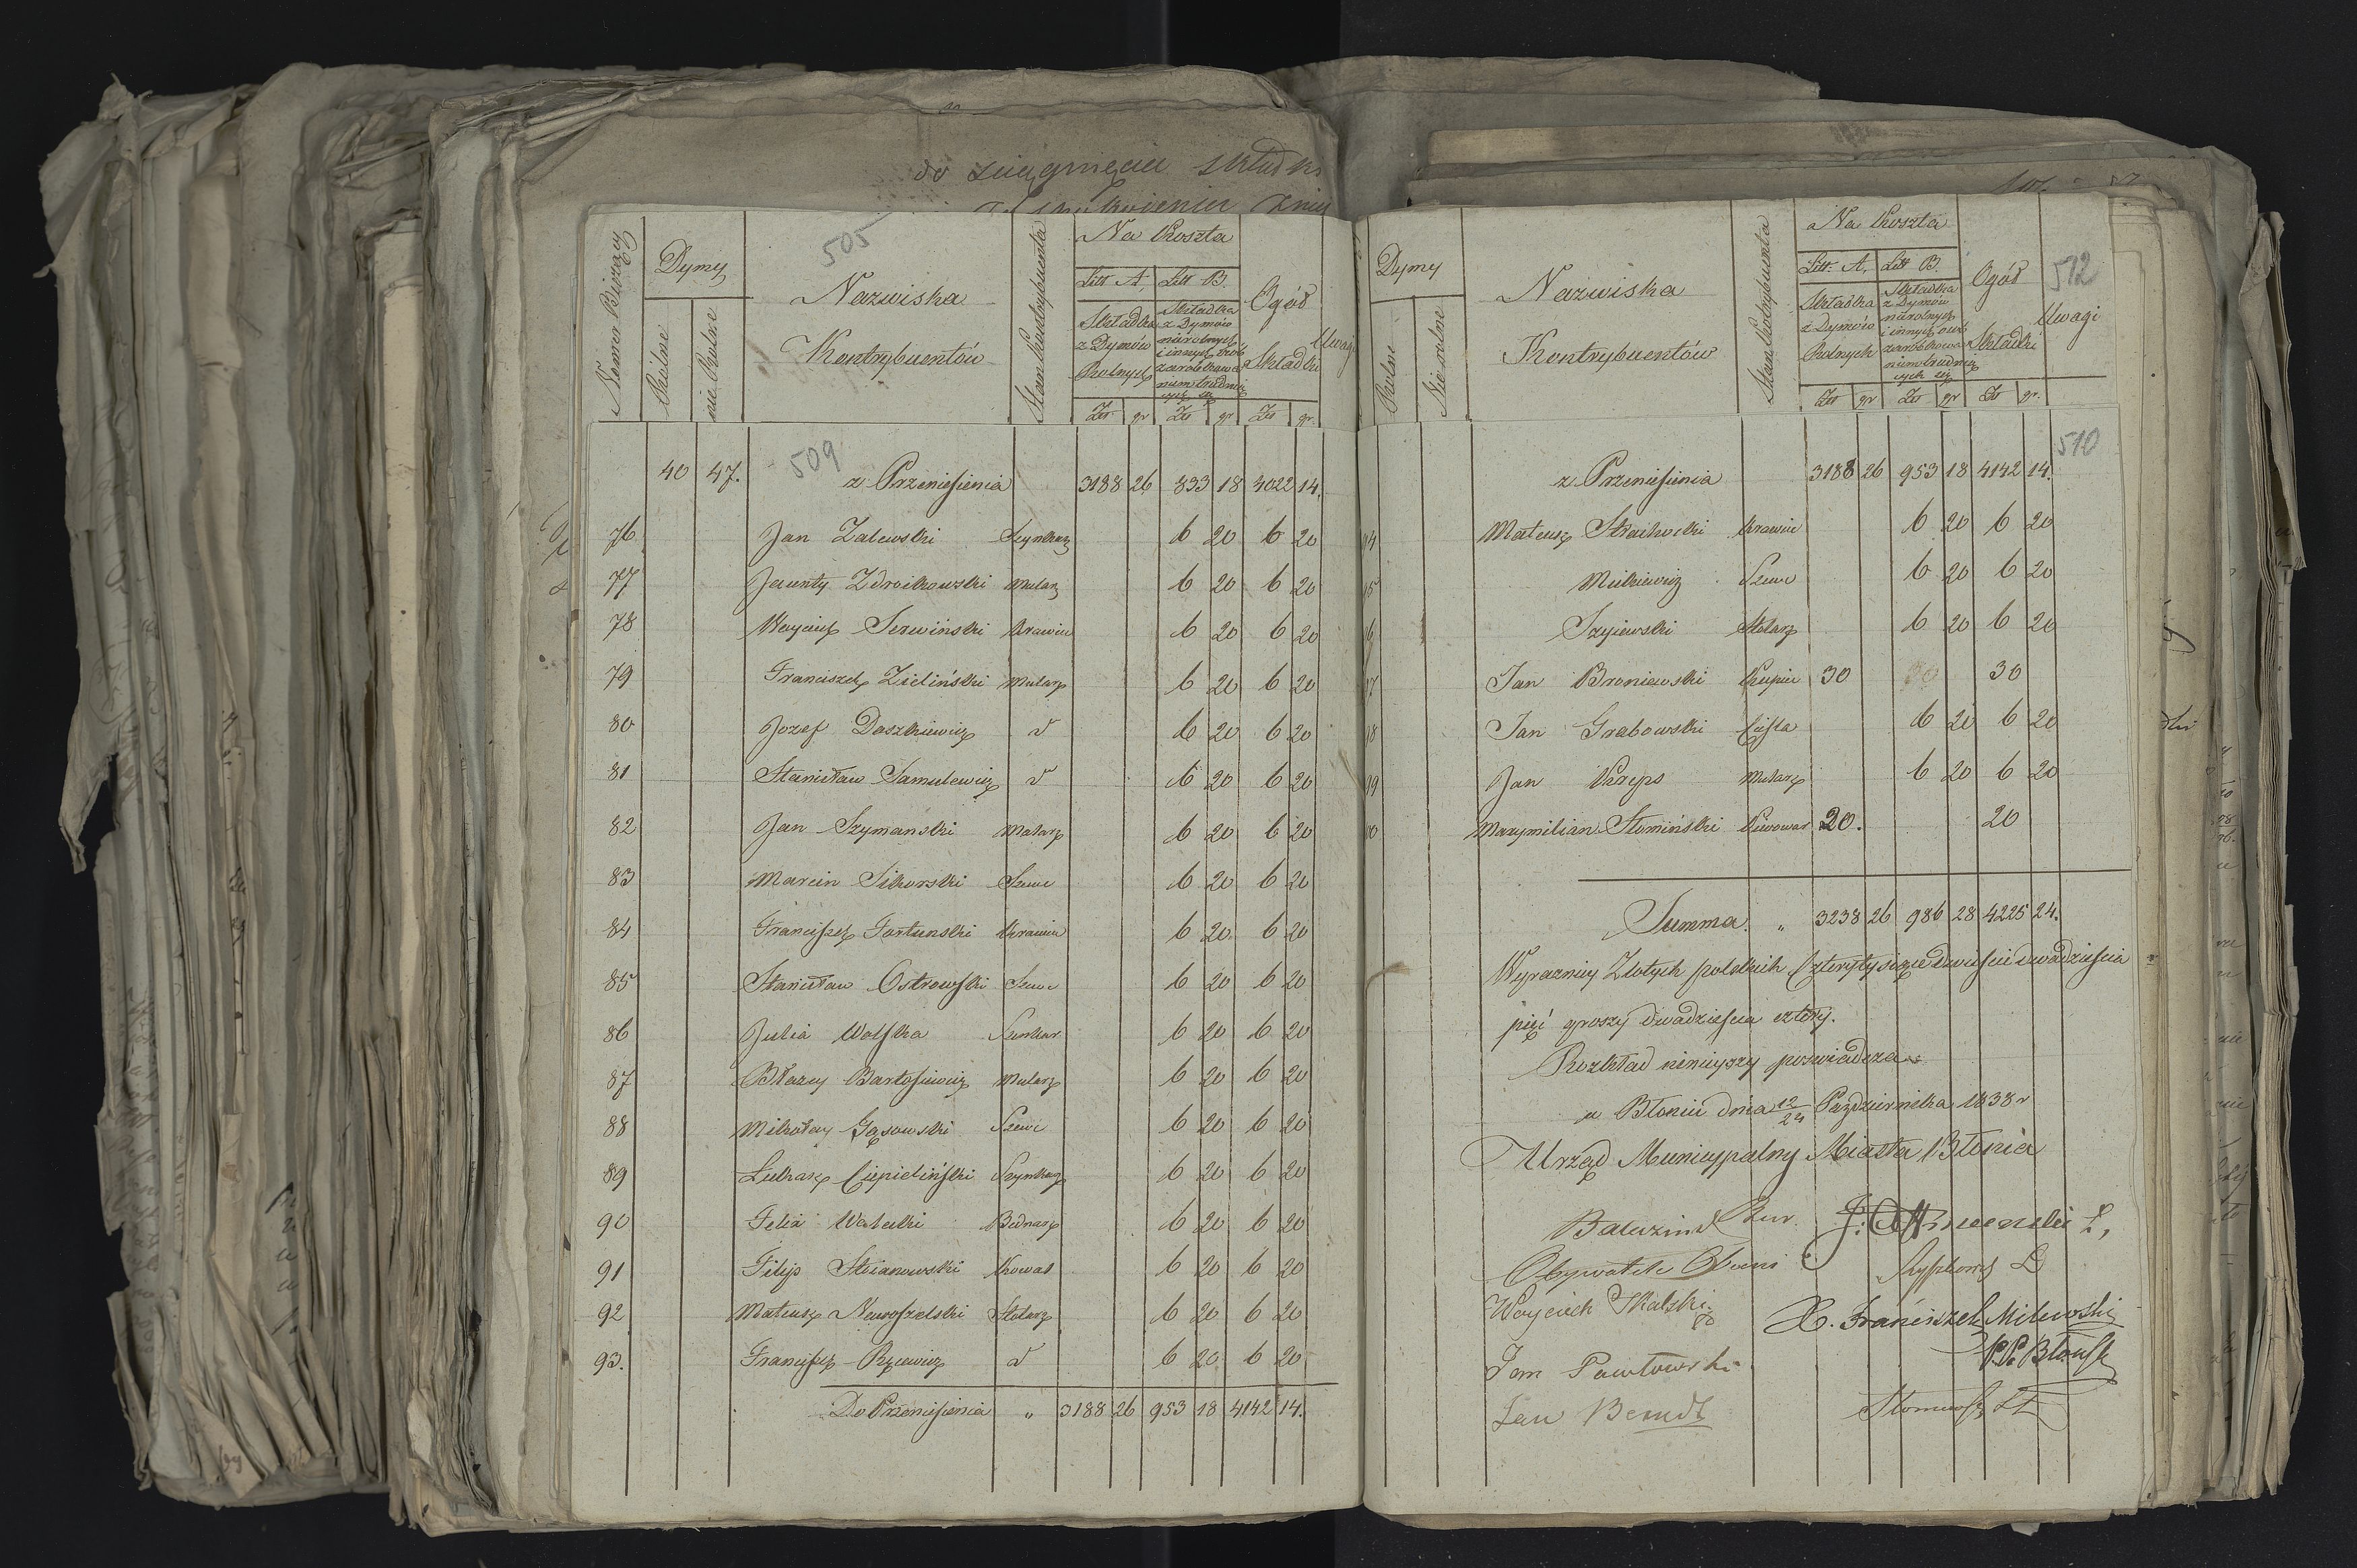 do sciągnięcia składki
505
Numer Bieżący
Dymy
Rolne
nie Rolne
Nazwiska
Kontrybuentów
Stan Kontrybuenta
Na Koszta
Litt A. Litt B.
Składka z Dymów Rolnych
Składka z Dymów nierolnych i innych
Ogół
Składki
Uwagi
Złr gr Zło gr Zło gr.
509
40 47. z Przeniesienia 3188 26 833 18 4022 14.
76 Jan Zalewski Szynkarz 6 20 6 20
77 Jacenty Zdroikowski Mularz 6 20 6 20
78 Woyciech Serwiński Krawiec 6 20 6 20
79 Franciszek Zieliński Mularz 6 20 6 20
80 Jozef Daszkiewicz d 6 20 6 20
81 Stanisław Samulewicz d 6 20 6 20
82 Jan Szymanski Malarz 6 20 6 20
83 Marcin Sikorski Szewc 6 20 6 20
84 Franciszek Fortunski Krawiec 6 20 6 20
85 Stanisław Ostrowski Szewc 6 20 6 20
86 Julia Wolska 6 20 6 20
87 Błazey Bartosiewicz Mularz 6 20 6 20
88 Mikołay Gąsowski Szewc 6 20 6 20
89 Łukasz Ciepieliński Szynkarz 6 20 6 20
90 Felix Wałecki Bednarz 6 20 6 20
91 Filip Stoianowski Kowal 6 20 6 20
92 Mateusz Nawoszelski Stolarz 6 20 6 20
93. Franciszek d 6 20 6 20
Do Przeniesienia " 3188 26 953 18 4142 14.
Dymy
Rolne
Nierolne
Nazwiska
Kontrybuentów
Stan Kontrybuenta
Na Koszta
Litt. A. Litt B.
Składka z Dymów Rolnych
Składka z Dymów nierolnych i innych
Ogół
Składki
512
Uwagi
Zło gr Zło gr Zło gr.
510
z Przeniesienia 3188 26 953 18 4142 14.
94 Mateusz Krawiec 6 20 6 20
95 Mickiewicz Szewc 6 20 6 20
96 Szyiewski Stolarz 6 20 6 20
97 Jan Broniewski Kupiec 30 30
98 Jan Grabowski Cieśla 6 20 6 20
99 Jan Kreps Mularz 6 20 6 20
00 Maxymilian Słomiński Piwowar 20. 20
Summa. " 3238 26 986 28 4225 24.
Wyraznicy Złotych polskich Czterytysiące dwieście dwadzieścia
pięć groszy dwadzieścia cztery.
Rozkład ninieyszy poswiadcza
w Błoniu dnia 12/24 Października 1838 r
Urząd Municypalny Miasta Błonia
Burm.
Obywatele
Woyciech Skalski
X. Franciszek Milewski
P.P. Błoński
Jan Pawłowski
Jan Bendt